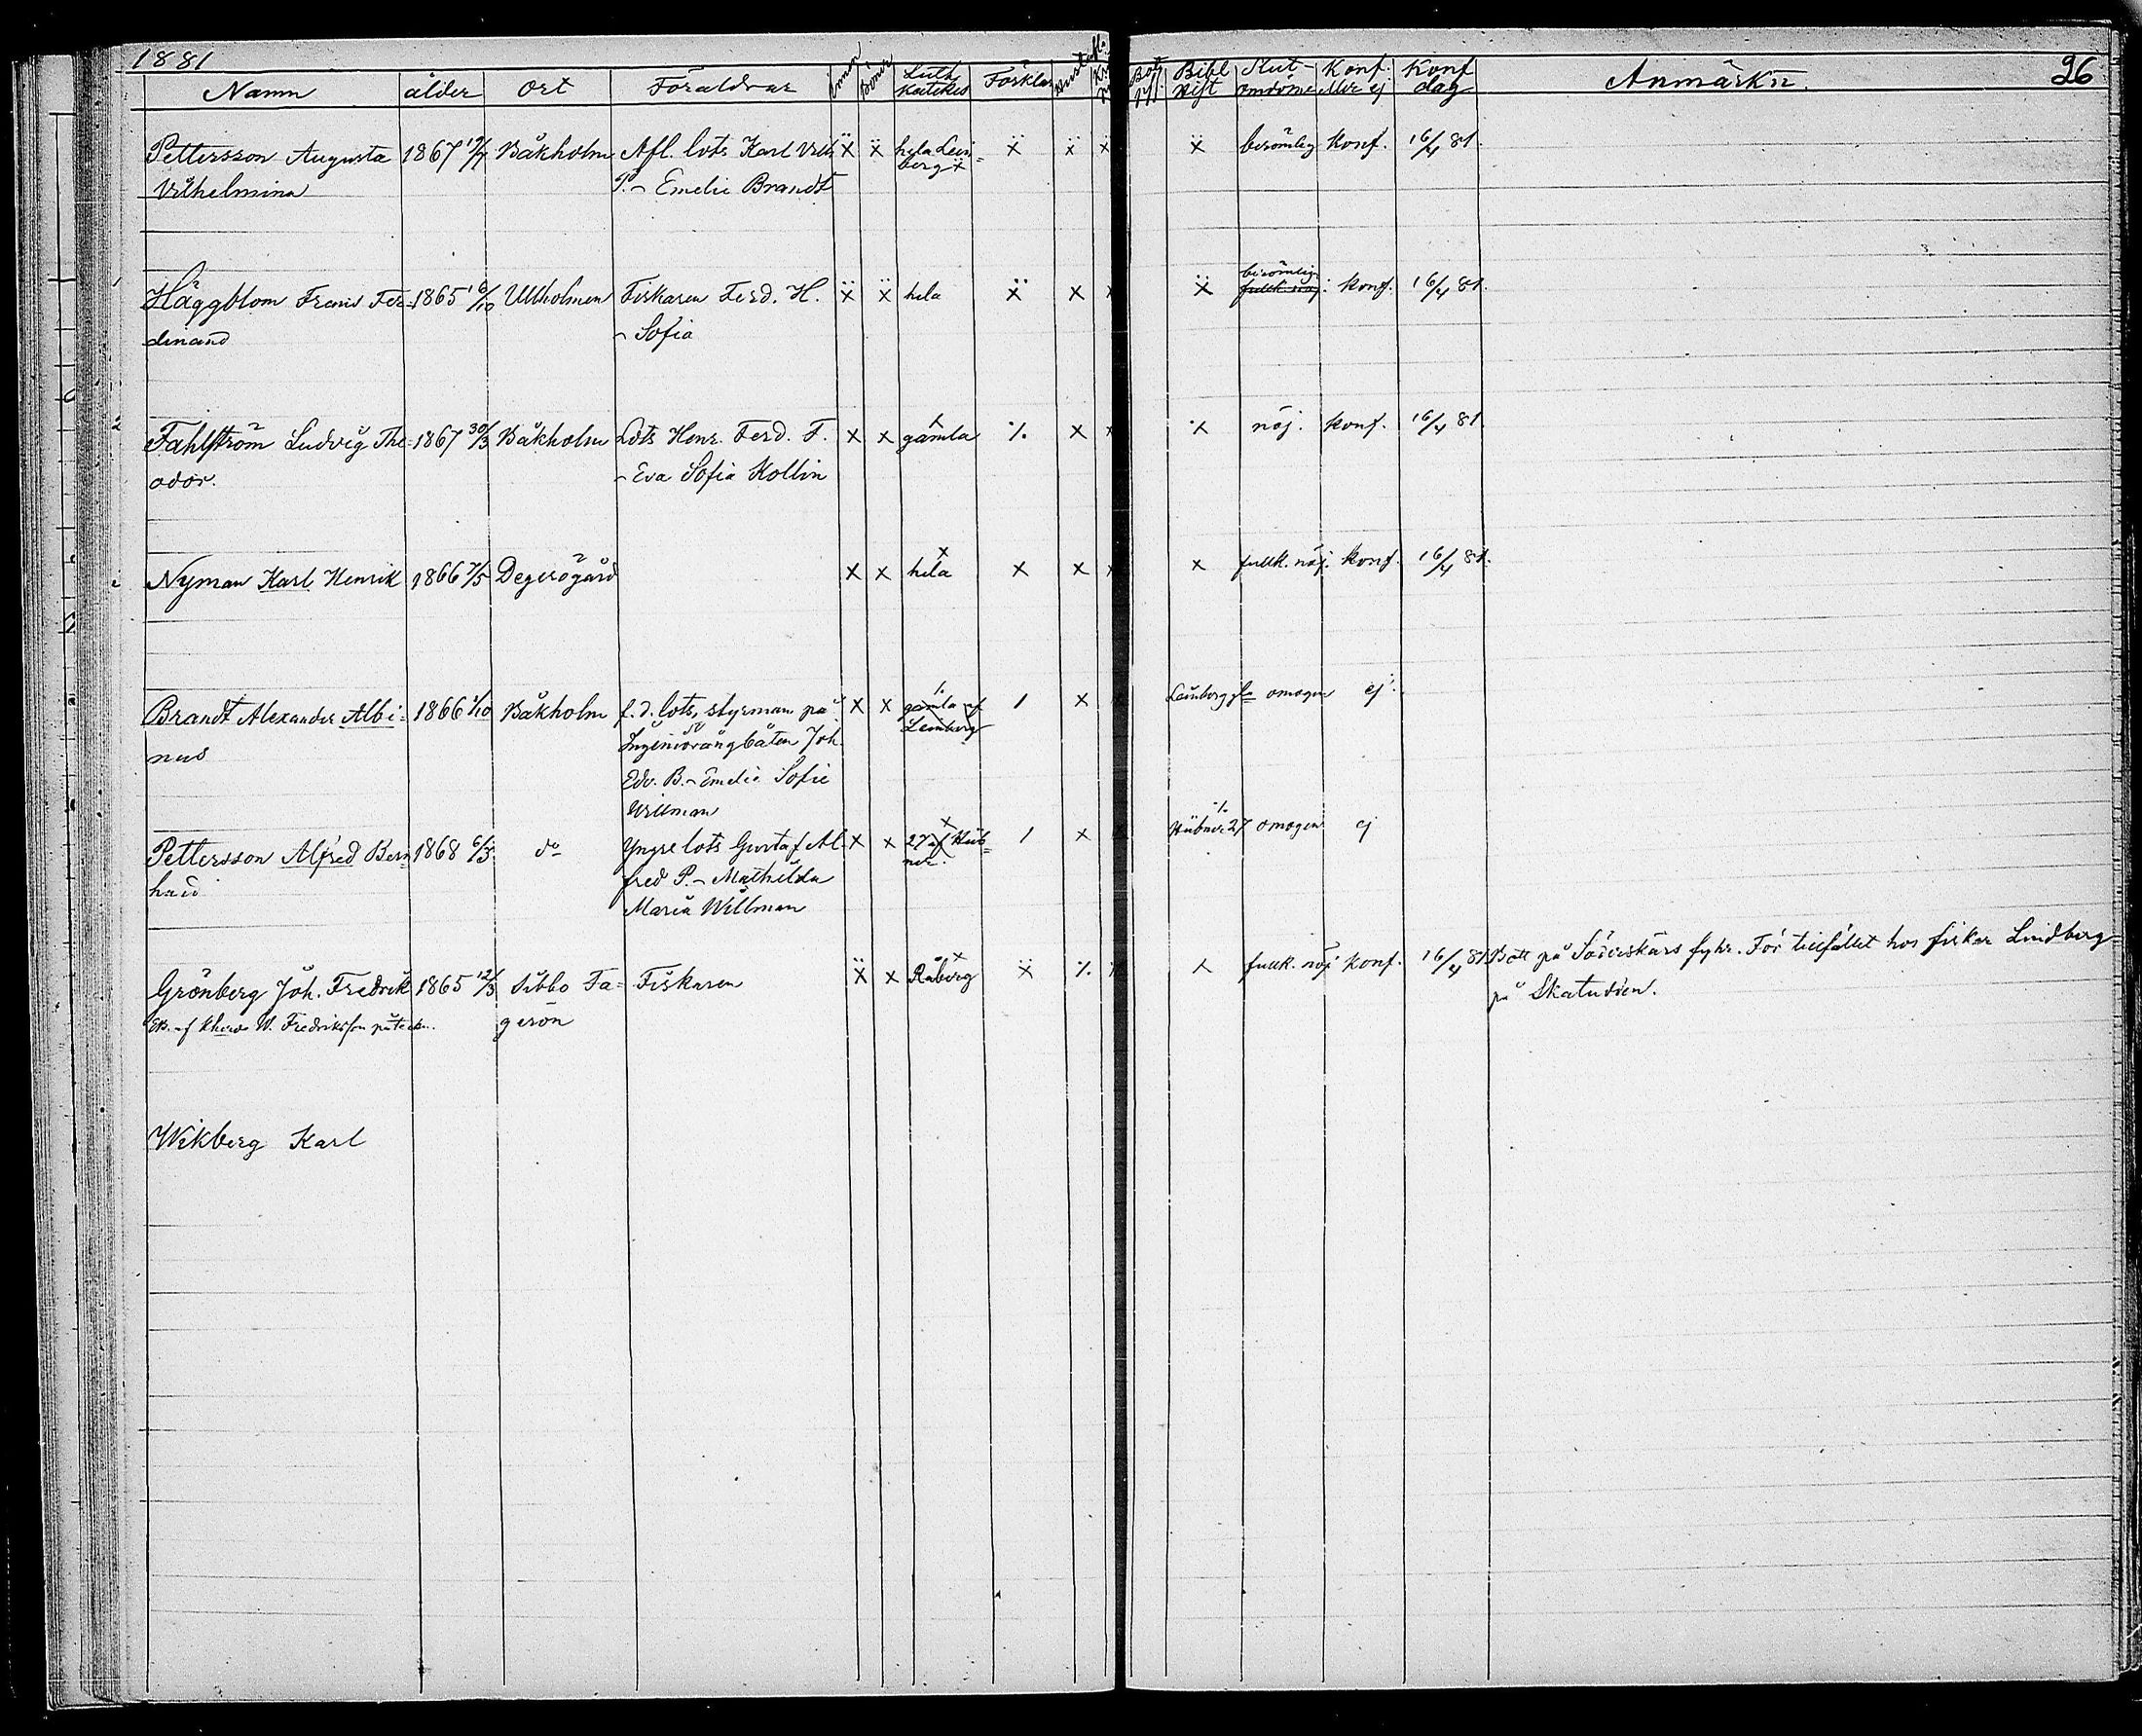 1881
26
Namn ålder Ort Föräldrar Innan Böner Luth. Katekes Förklar Bibl. hist Slut-omdöme Konf. eller ej Konf dag Anmärkn.
Pettersson Augusta 1867 Båkholm Afl. lots Karl Vilh. X X hela Lein= X X X X berömlig Konf. 16/4 81.
Vilhelmina P. - Emelie Brandt berg X
berömlig
Häggblom Frans Fer= 1865 16/10 Ullholmen Fiskaren Ferd. H. X X hela X X X fullk. nöj. konf. 16/4 81.
dinand - Sofia
Fahlström Ludvig The= 1867 30/3 Båkholm Lots Henr. Ferd. F. X X gamla % X X nöj. konf. 16/4 81.
odor. - Eva Sofia Kollin
Nyman Karl Henrik 1866 7/5 Degerögård X X hela X X X fullk. nöj. konf. 16/4 81.
Brandt Alexander Albi= 1866 1/10 Båkholm f.d. lots, styrman på X X gamla af 1 X Leinberg gla omogen ej.
nus Ingeniörångbåten Joh. Leinberg
Edv. B. - Emelie Sofie
Willman
Pettersson Alfred Bern 1868 6/3 do Yngre lots Gustaf Al- X X 27 af Hüb= 1 X Hübner 27 omogen ej
hard fred P. - Mathilda ner.
Maria Willman
Grönberg Joh. Fredrik 1865 12/3 Sibbo Fa= Fiskaren X X Råberg X % X fullk. nöj konf. 16/4 81. Bott på Söderskärs fyhr. För tillfället hos fiskar Lindberg
W. Fredriksson geron på Skatudden.
Wikberg Karl